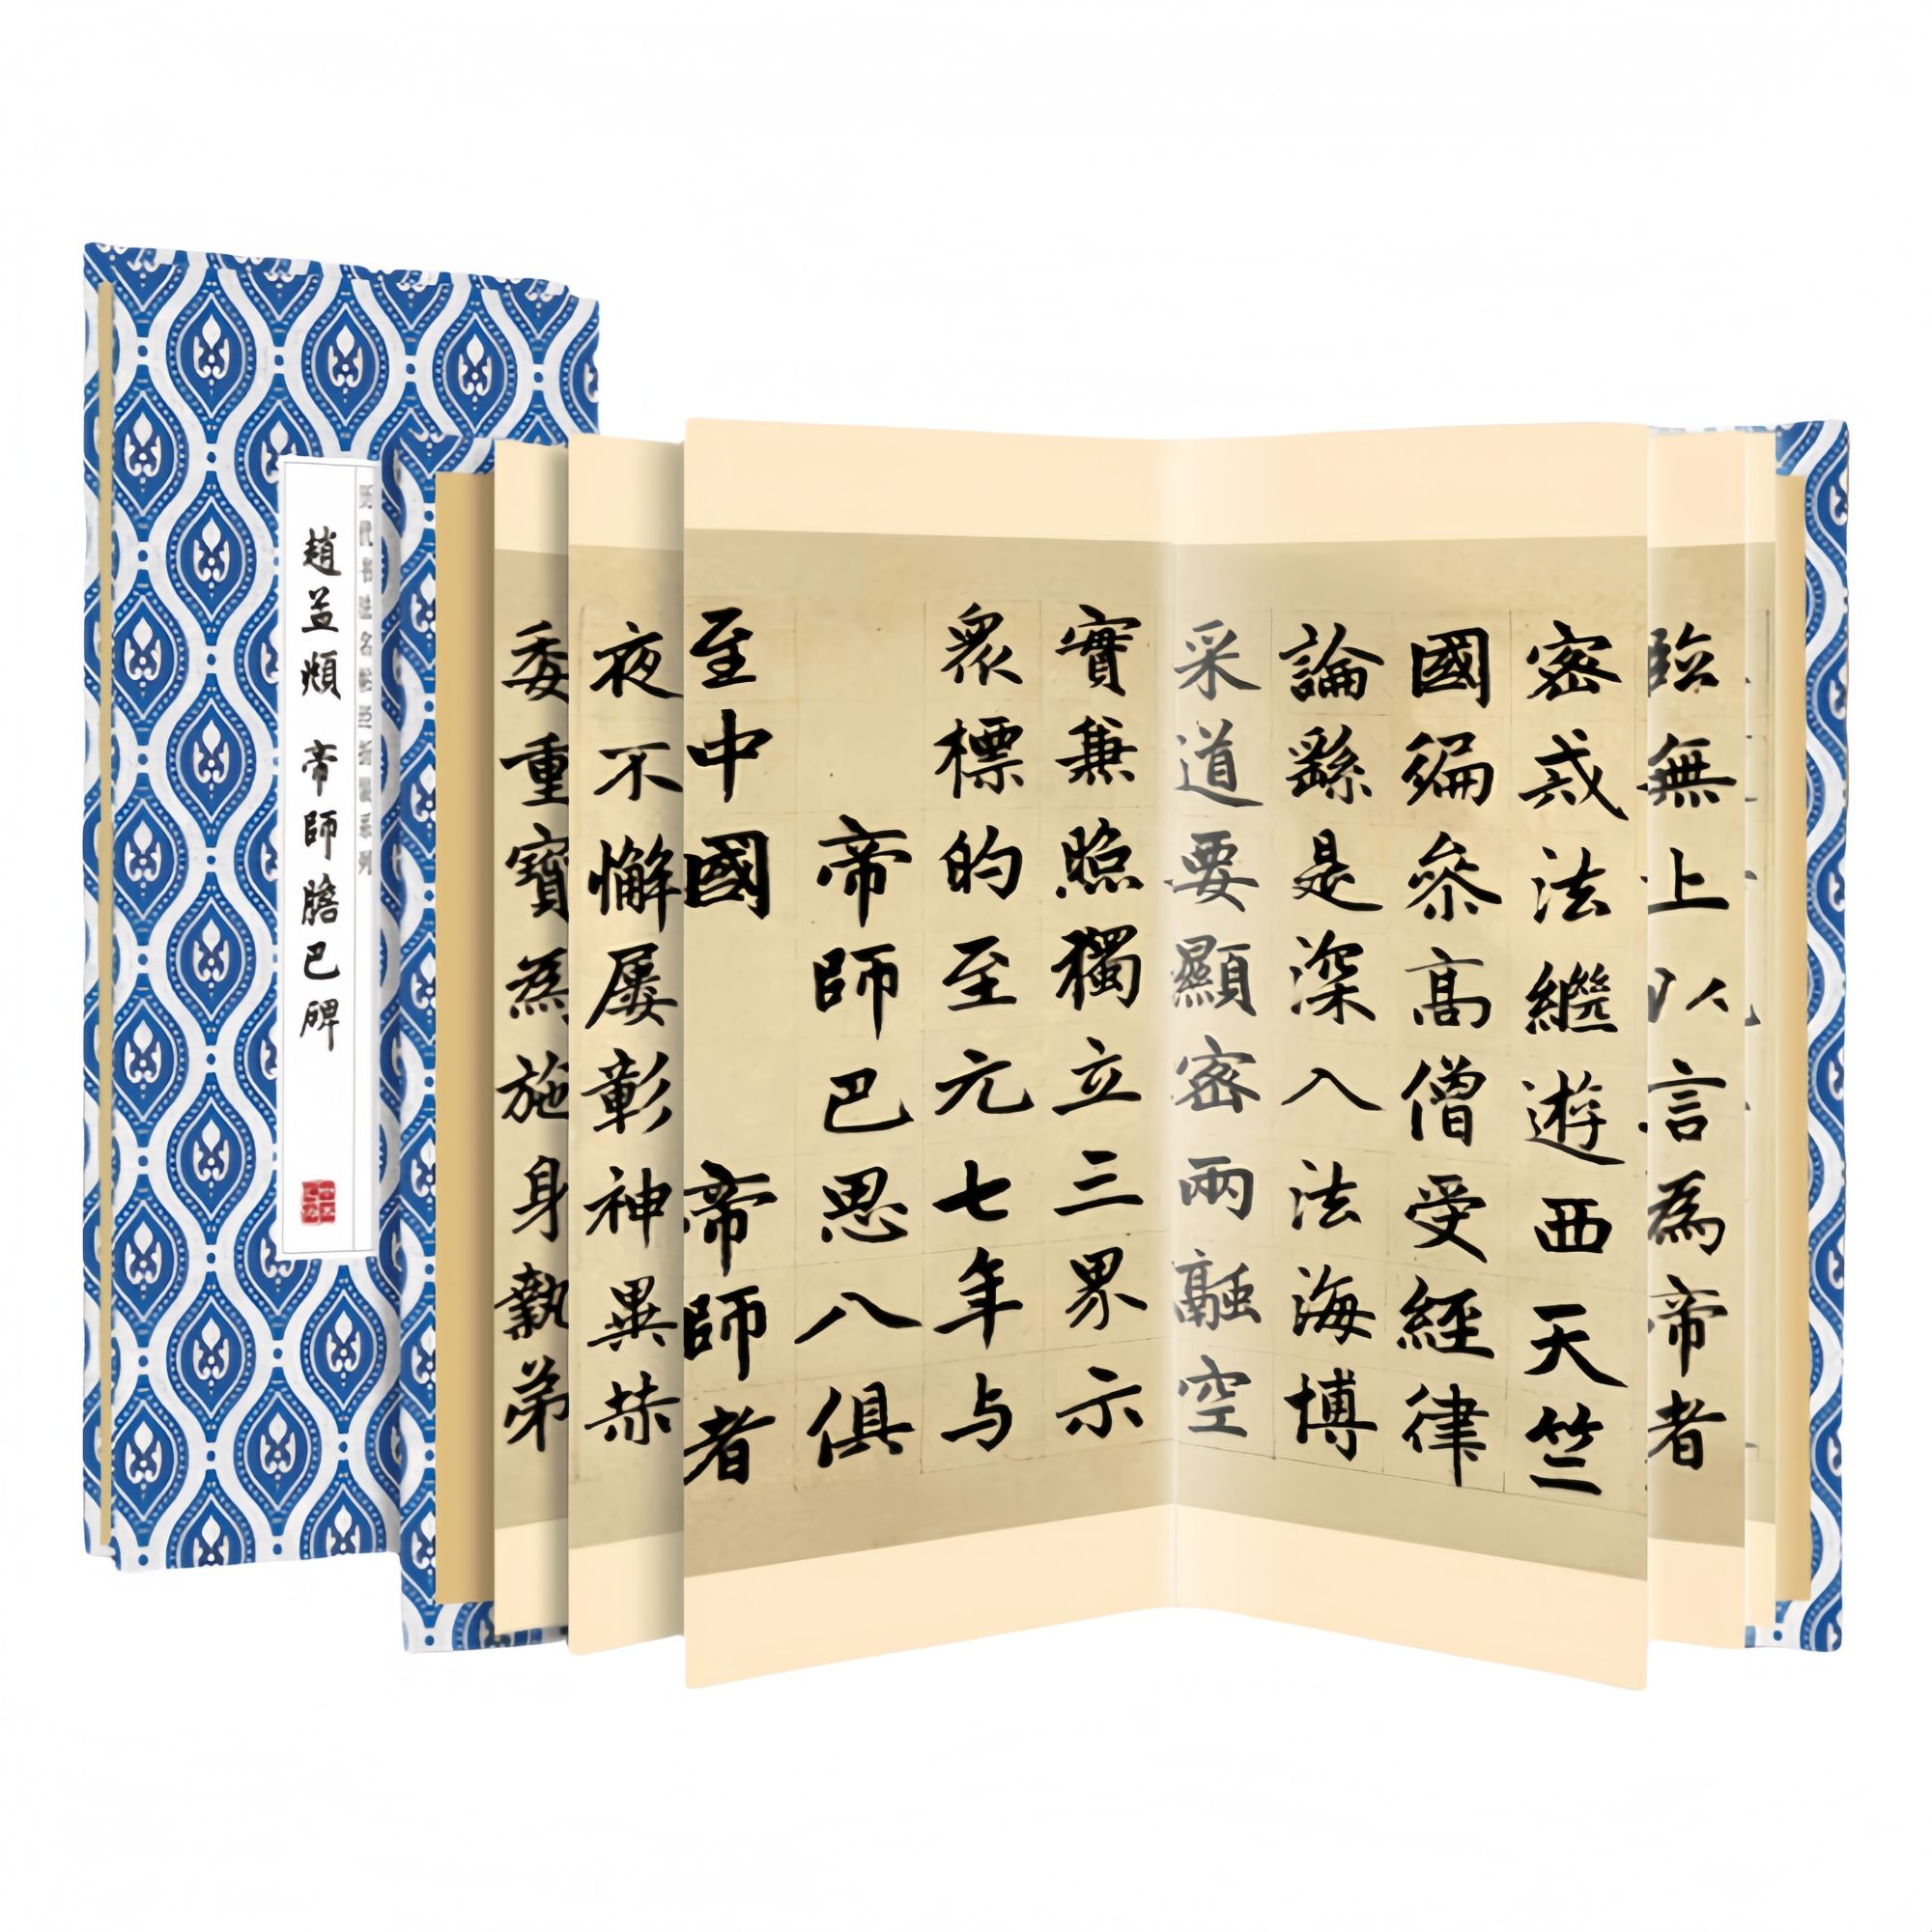 趙孟頫 帝師膽巴碑
臨無上以言為帝者
密戒法繼遊西天竺
國徧參高僧受經律
論繇是深入法海博
采道要顯密兩融空
實兼照獨立三界示
眾標的至元七年与
帝師巴思八俱
至中國 帝師者
夜不懈屢彰神異赫
委重寶為施身執弟